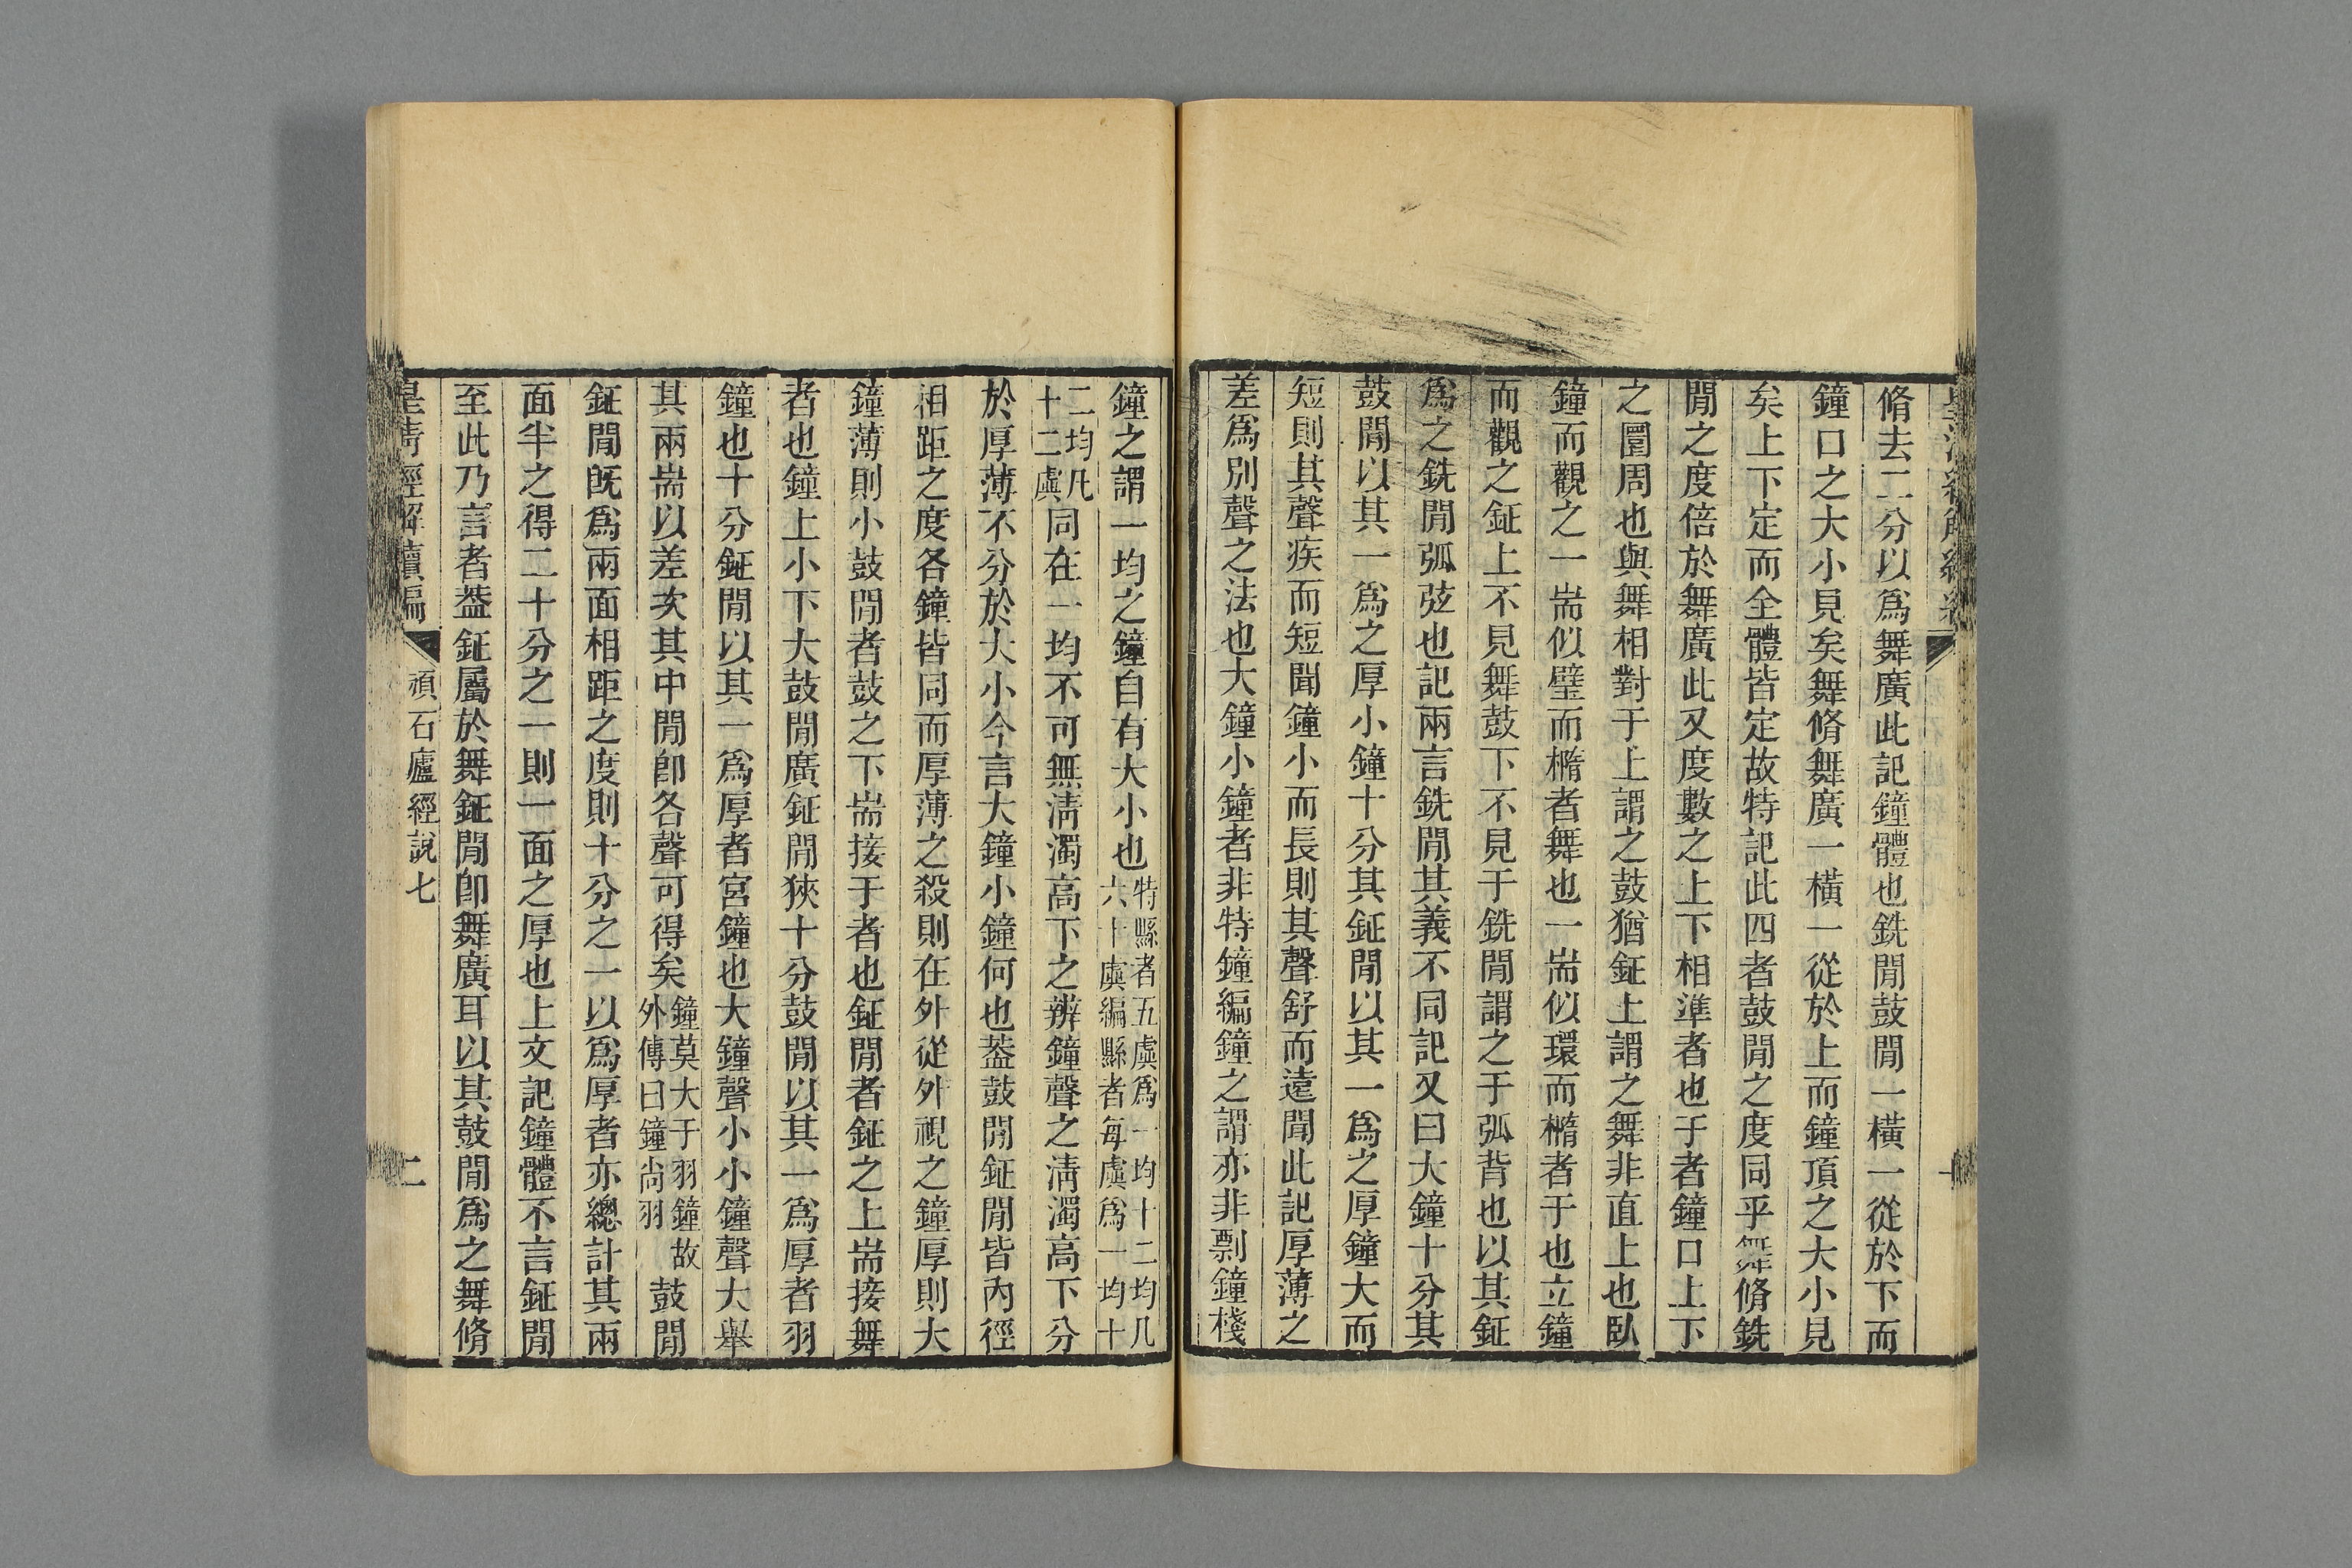 脩去二分以爲舞廣此記鐘體也銑閒鼓閒一橫一從於下而
鐘口之大小見矣舞脩舞廣一橫一從於上而鐘頂之大小見
矣上下定而全體皆定故特記此四者鼓閒之度同乎舞脩銑
閒之度倍於舞廣此又度數之上下相準者也于者鐘口上下
之圜周也與舞相對于上謂之鼓猶鉦上謂之舞非直上也臥
鐘而觀之一耑似璧而橢者舞也一耑似環而橢者于也立鐘
而觀之鉦上不見舞鼓下不見于銑閒謂之于弧背也以其鉦
爲之銑閒弧弦也記兩言銑閒其義不同記又曰大鐘十分其
鼓閒以其一爲之厚小鐘十分其鉦閒以其一爲之厚鐘大而
短則其聲疾而短聞鐘小而長則其聲舒而遠聞此記厚薄之
差爲別聲之法也大鐘小鐘者非特鐘編鐘之謂亦非剽鐘棧
鐘之謂一均之鐘自有大小也特縣者五虡爲一均十二均凡六十虡編縣者每虡爲一均十
二均凡十二虡同在一均不可無淸濁高下之辨鐘聲之淸濁高下分
於厚薄不分於大小今言大鐘小鐘何也葢鼓閒鉦閒皆內徑
相距之度各鐘皆同而厚薄之殺則在外從外視之鐘厚則大
鐘薄則小鼓閒者鼓之下耑接于者也鉦閒者鉦之上耑接舞
者也鐘上小下大鼓閒廣鉦閒狹十分鼓閒以其一爲厚者羽
鐘也十分鉦閒以其一爲厚者宮鐘也大鐘聲小小鐘聲大舉
其兩耑以差次其中閒卽各聲可得矣鐘莫大于羽鐘故外傳曰鐘尙羽鼓閒
鉦閒旣爲兩面相距之度則十分之一以爲厚者亦總計其兩
面半之得二十分之一則一面之厚也上文記鐘體不言鉦閒
至此乃言者葢鉦屬於舞鉦閒卽舞廣耳以其鼓閒爲之舞脩
皇淸經解續編
頑石廬經說七
二